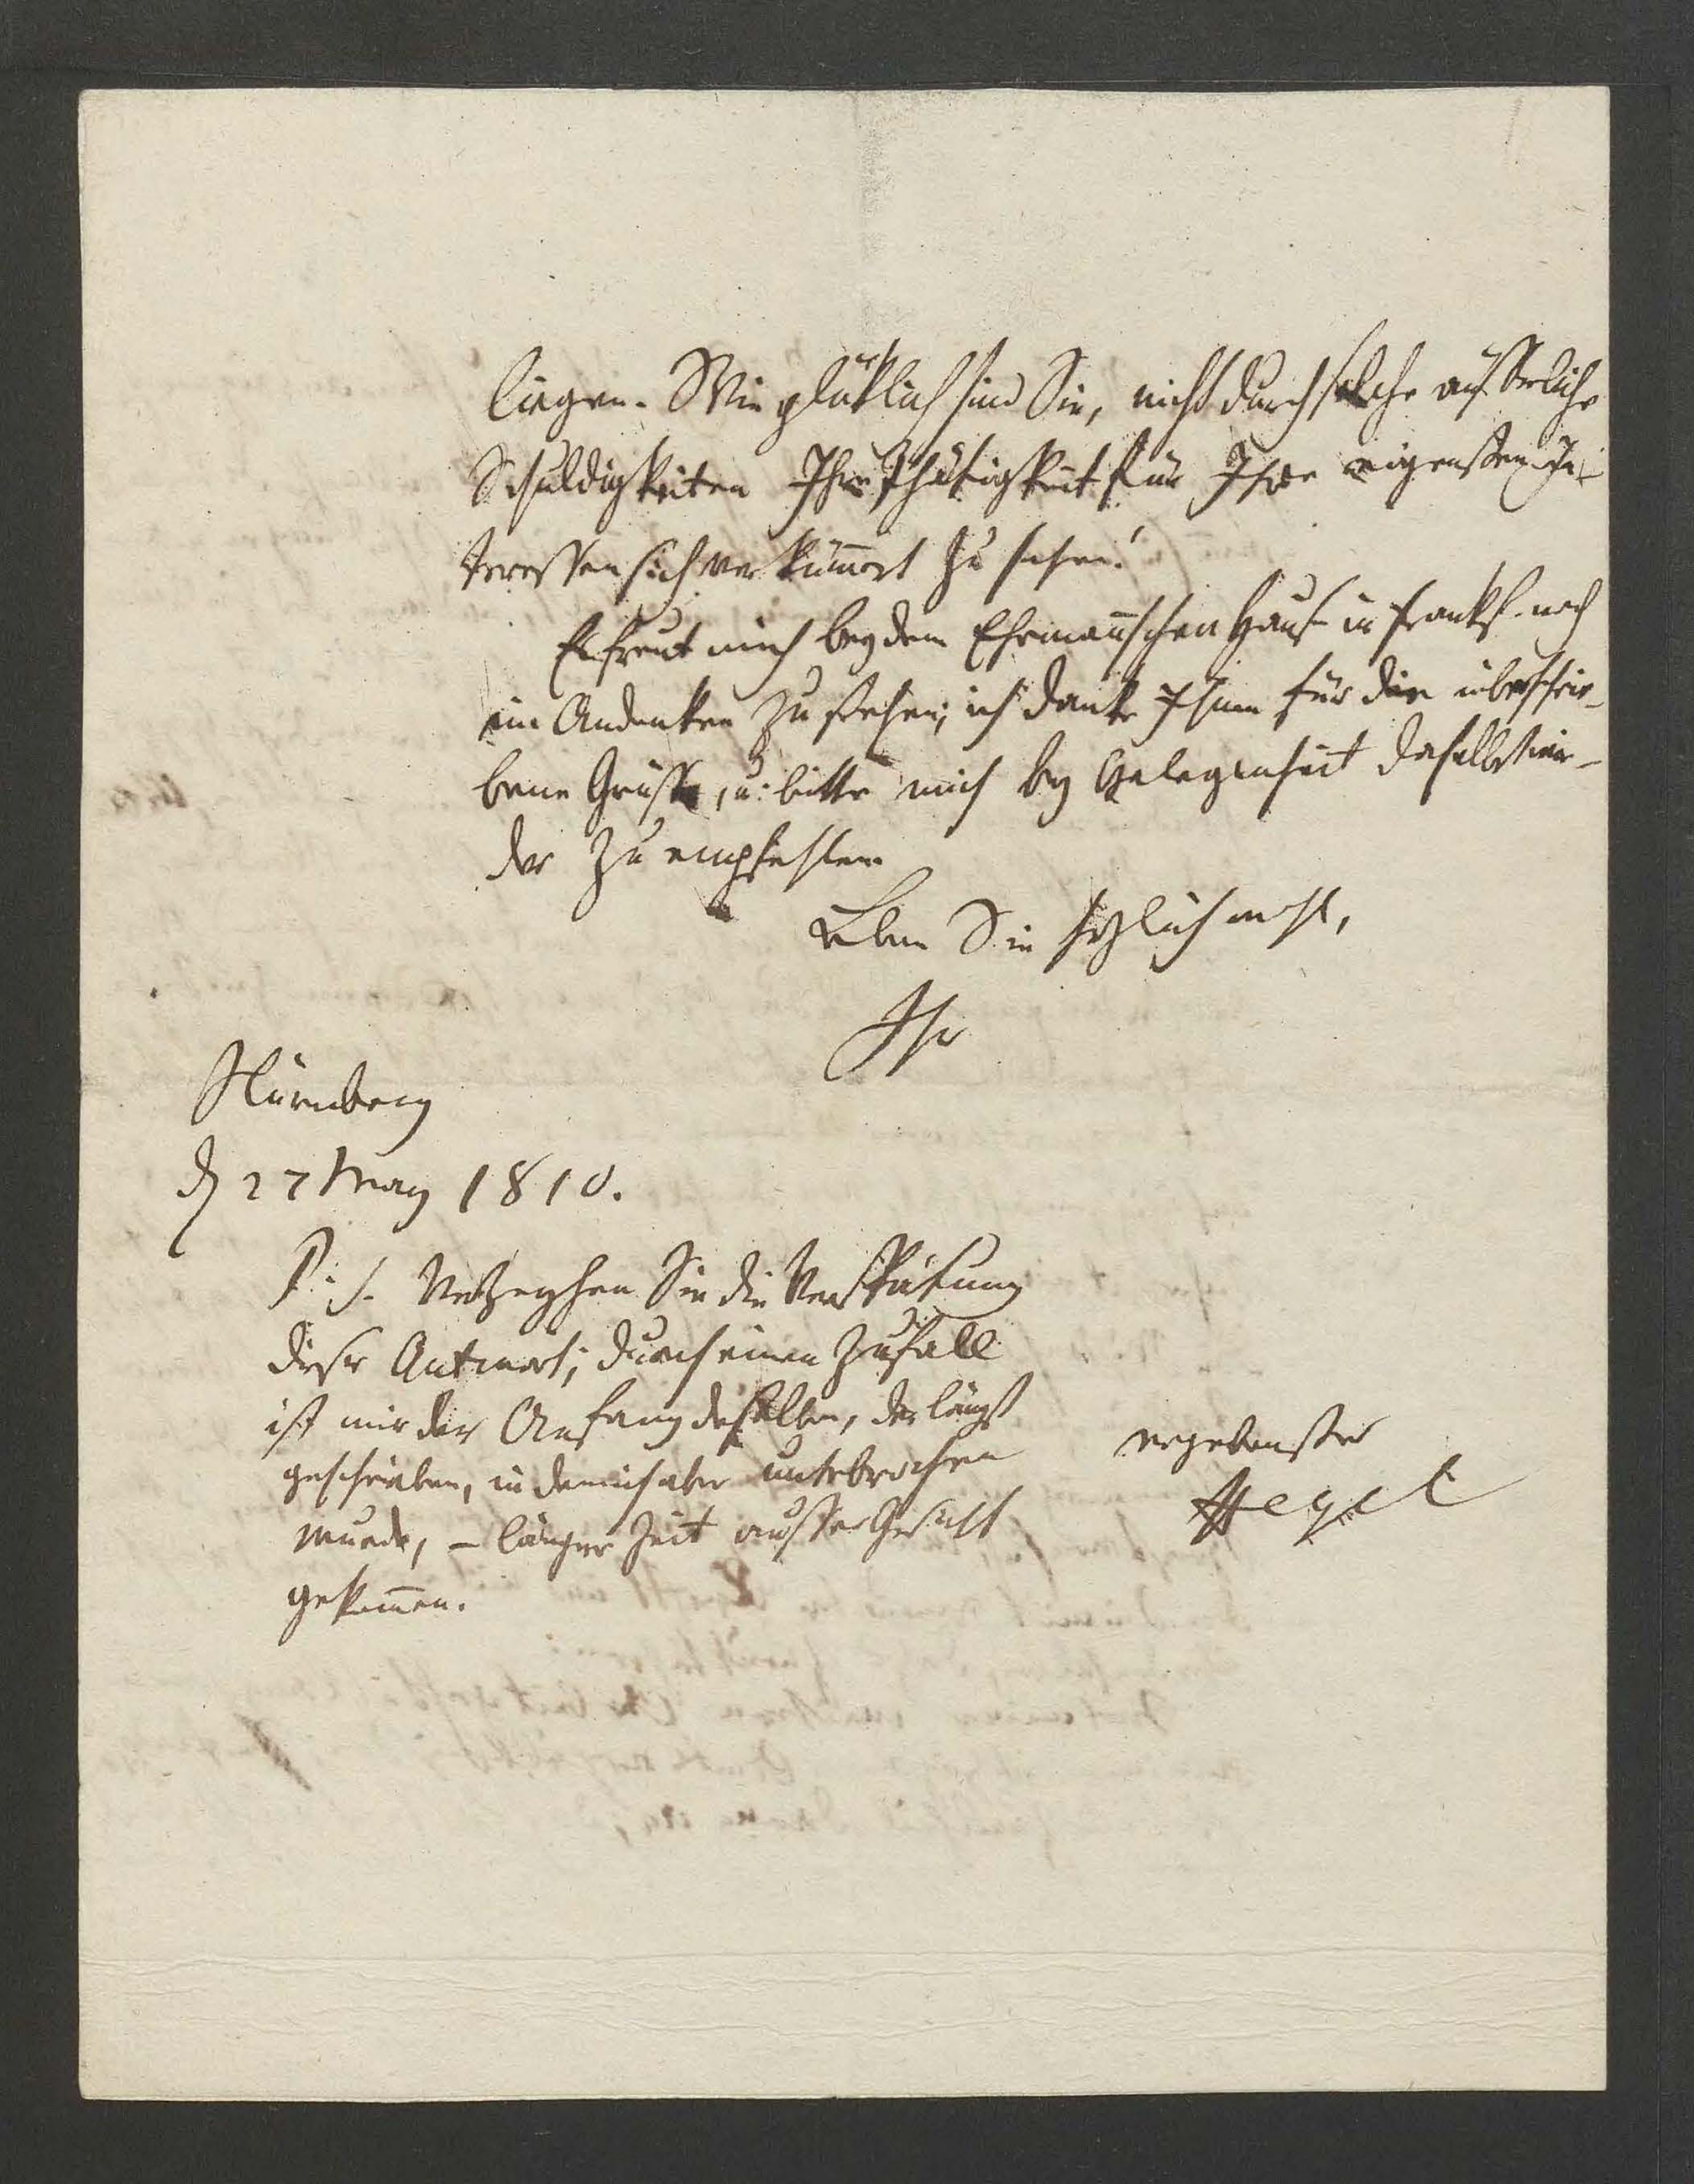 liegen. Wie glüklich sind Sie, nicht durch solche äusserliche
Schuldigkeiten Ihre Thätigkeit für Ihre eigensten In-
teressen sich verkümert zu sehen!
Es freut mich bey dem Ehrmanschen Hause in Frankf. noch
im Andenken zu stehen; ich danke Ihnen für die überschrie-
bene Grüsse, u. bitte mich bey Gelegenheit daselbst wie-
der zu empfehlen
Leben Sie herzlich wohl,
Ihr
Nürnberg
d 27 May 1810.
P. S. Verzeyhen Sie die Verspätung
dieser Antwort; durch einen Zufall
ist mir der Anfang derselben, der längst
geschrieben, in dem ich aber unterbrochen
wurde, – länger Zeit ausser Gesicht
gekomen.
ergebenster
Hegel